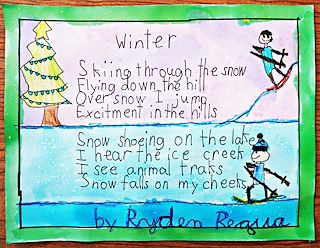 Winter
Skiing through the snow
Flying down the hill
Over snow I jump
Excitment in the hills
Snow shoeing on the lake
I hear the ice creek
I see animal traks
Snow falls on my cheeks
by Ryden Regsia